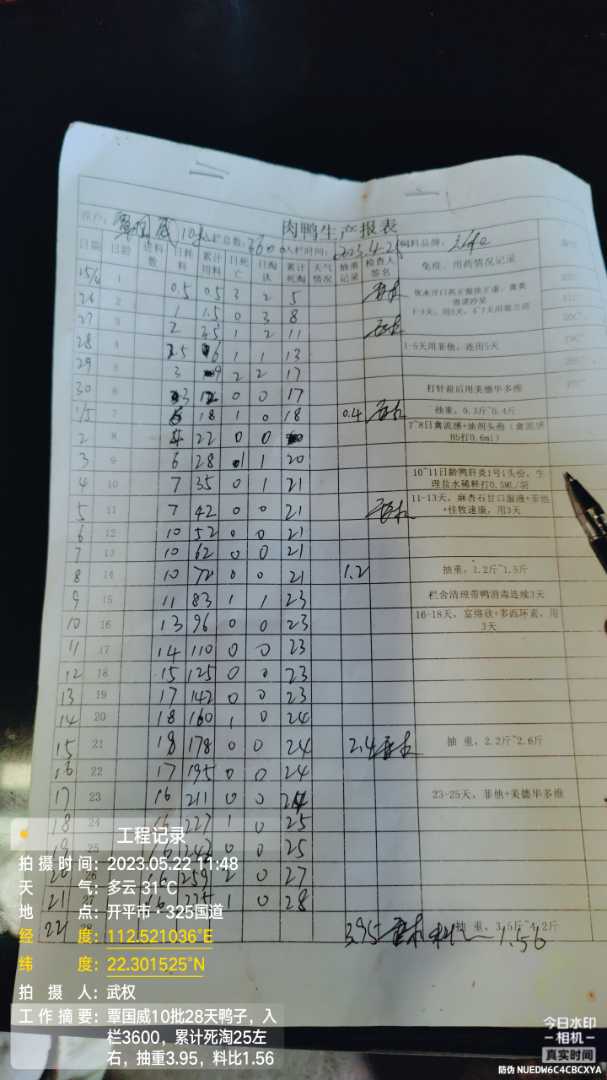 肉鸭生产报表
养户: 覃国威 10批 入栏总数: 3600 入栏时间: 2023.4.25 饲料品牌:
日期 日龄 送料数 日耗料 累计用料 日死亡 日淘汰 累计死淘 天气情况 抽重记录 检查人签名 免疫、用药情况记录
25/4 1 0.5 0.5 3 2 5
26 2 1 1.5 0 3 8
27 3 2 3.5 1 2 11
28 4 2.5 6 1 1 13 1-5天用菲他，连用5天
29 5 3 9 2 2 17
30 6 3 12 0 0 17 打针前后用美德华多维
1/5 7 6 18 1 0 18 0.4 抽重，0.3斤~0.4斤
2 8 4 22 0 0 7~8日禽流感+油剂头孢（禽流感H5打0.6ml）
3 9 6 28 1 1 20
4 10 7 35 0 1 21 10~11日龄鸭肝炎1号1头份，生理盐水稀释打0.5ML/羽
5 11 7 42 0 0 21 11-13天，麻杏石甘口服液+菲他+佳牧速康，用3天
6 12 10 52 0 0 21
7 13 10 62 0 0 21
8 14 10 72 0 0 21 1.2 抽重，1.2斤~1.3斤
9 15 11 83 1 1 23 栏舍清理带鸭消毒连续3天
10 16 13 96 0 0 23 16-18天，富得欣+多西环素，用3天
11 17 14 110 0 0 23
12 18 15 125 0 0 23
13 19 17 142 0 0 23
14 20 18 160 1 0 24
15 21 18 178 0 0 24 2.4 抽 重，2.2斤~2.6斤
16 22 17 195 0 0 24
17 23 16 211 0 0 24 23-25天，菲他+美德华多维
18 24 16 227 1 0 25
19 25 16 243 0 0 25
20 26 16 259 2 0 27
21 27 16 275 1 0 28
22 28 3.95 料比 1.56 抽 重，3.5斤~4.2斤
工程记录
拍 摄 时 间: 2023.05.22 11:48
天 气: 多云 31℃
地 点: 开平市·325国道
经 度: 112.521036°E
纬 度: 22.301525°N
拍 摄 人: 武权
工 作 摘 要: 覃国威10批28天鸭子，入
栏3600，累计死淘25左
右，抽重3.95，料比1.56
今日水印
-相机-
真实时间
防伪 NUEDW6C4CBCXYA